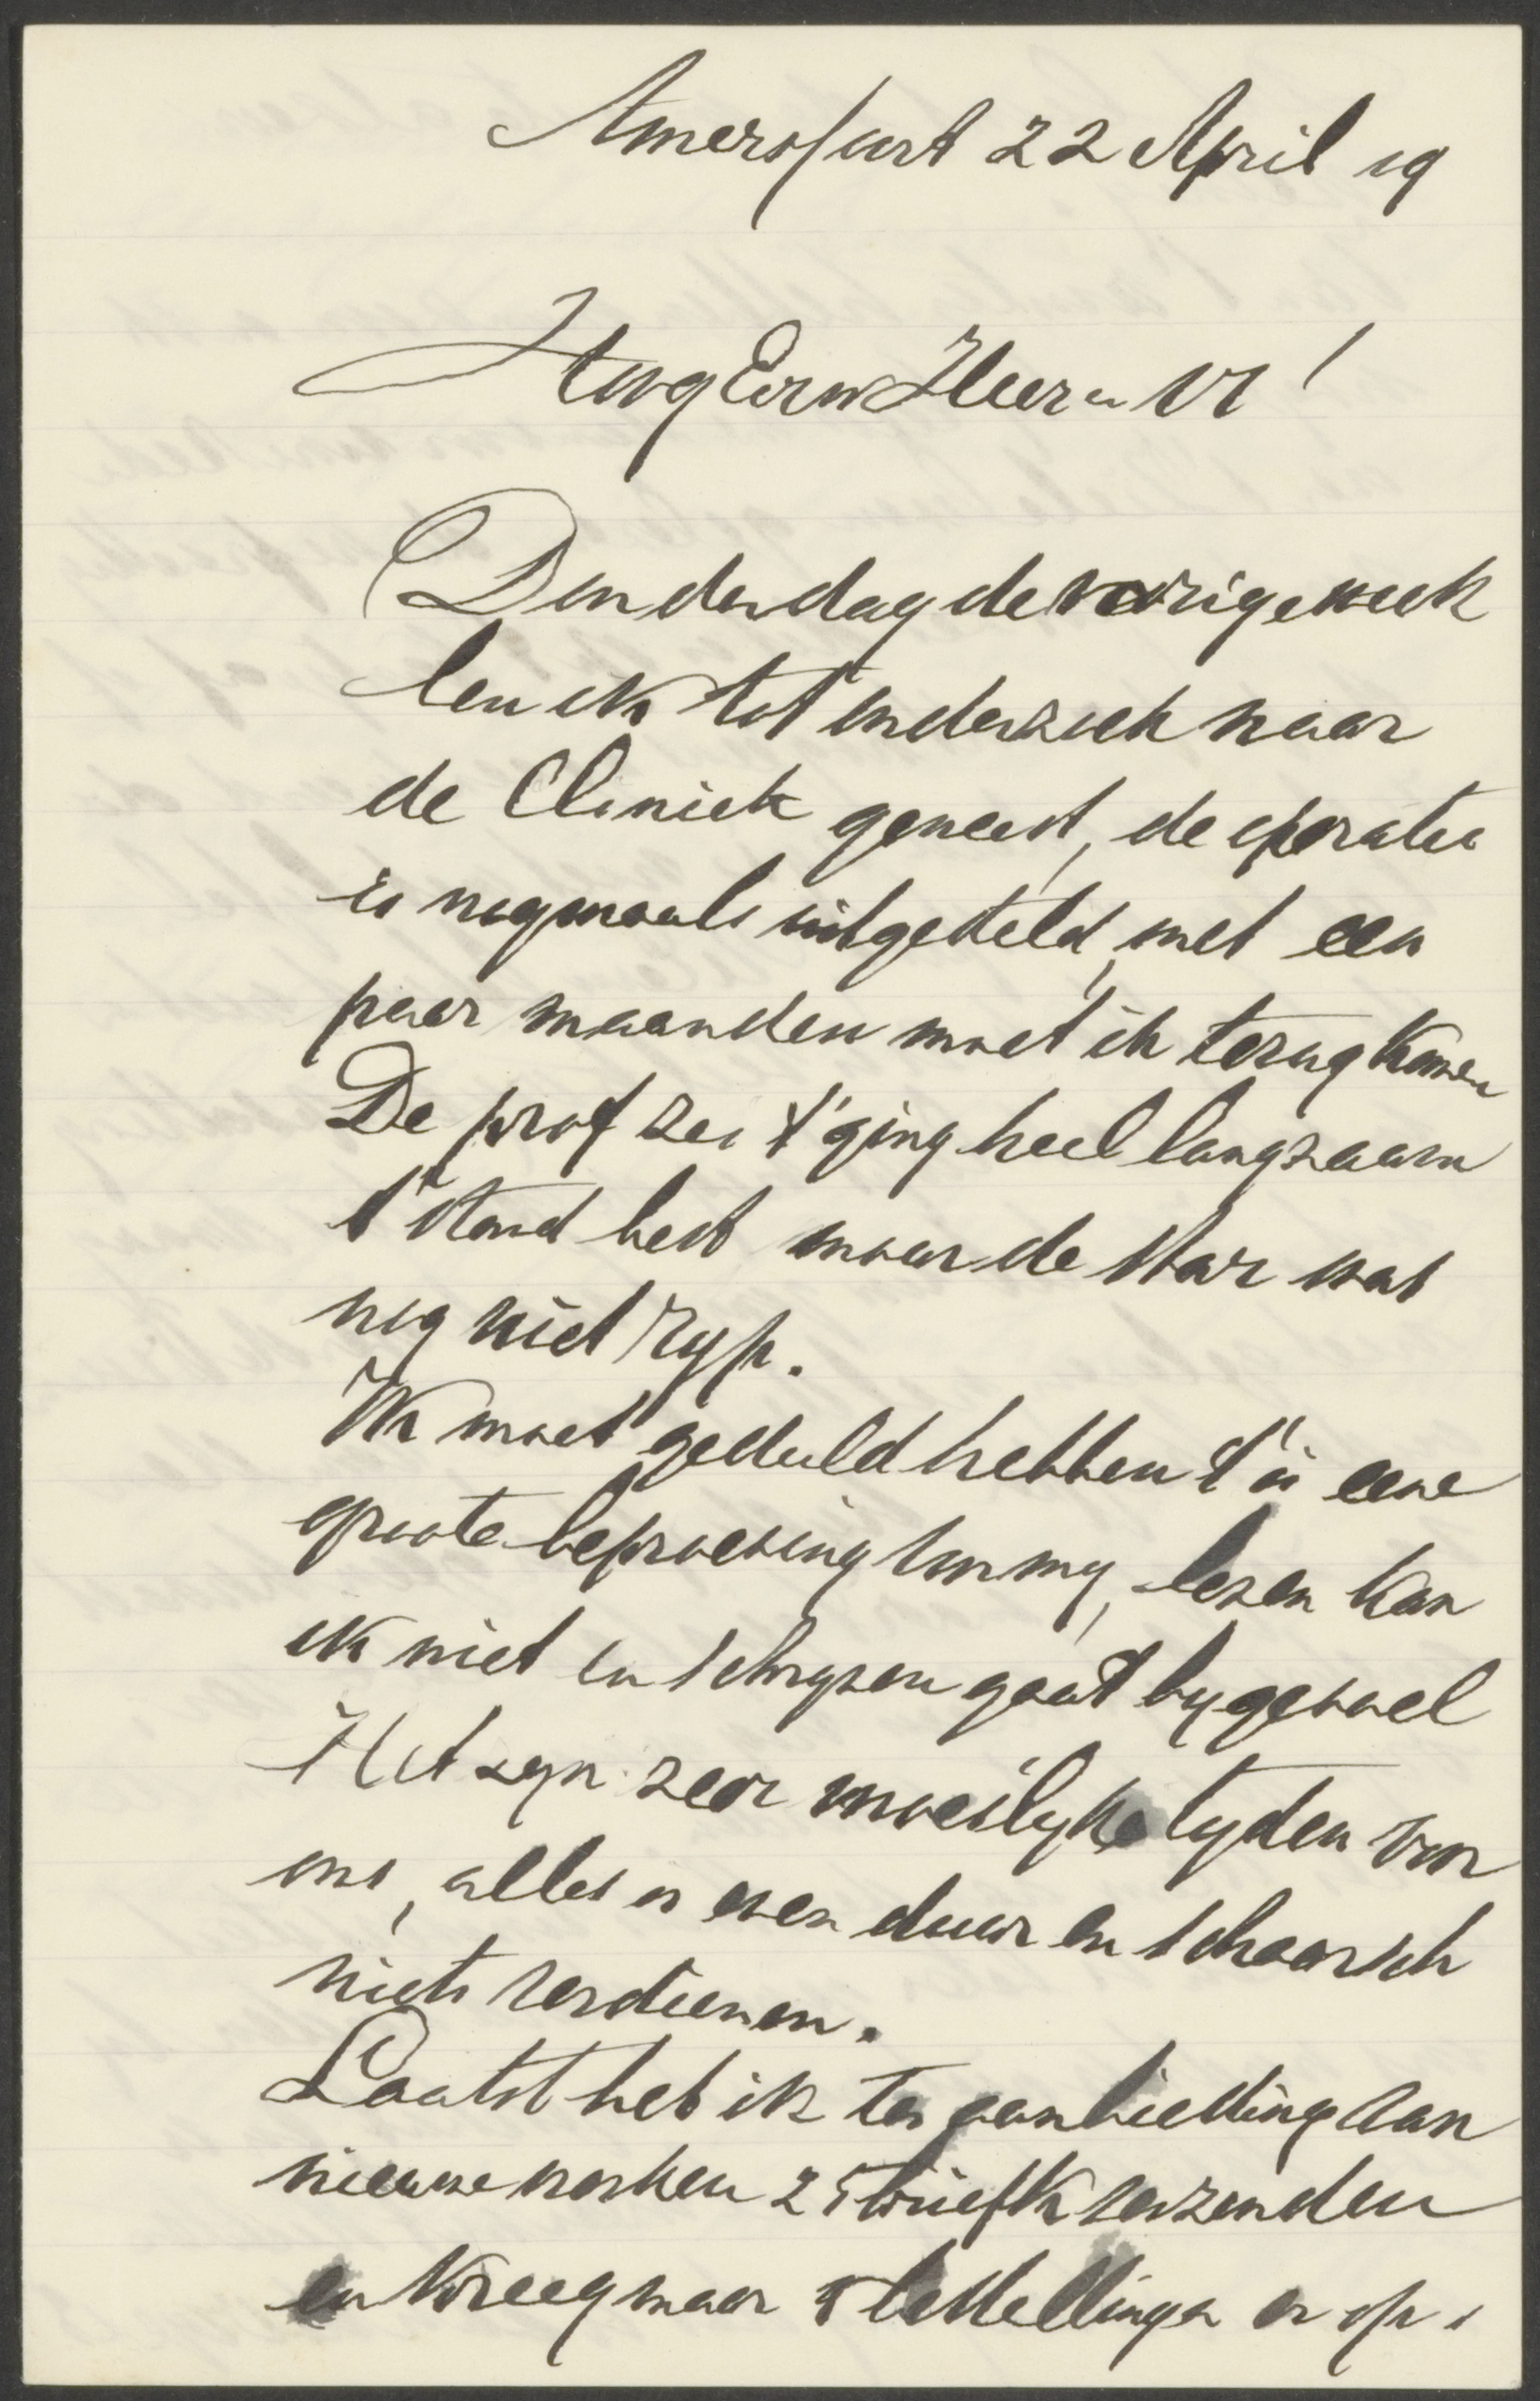 Amersfoort 22 April 19
HoogEerw Heer en Vr !
Donderdag de vorige week
ben ik tot onderzoek naar
de Cliniek geweest, de operatie
is nogmaals uitgesteld, met een
paar maanden moet ik terug komen
De prof zei t' ging heel langzaam
t' stond best maar de staar was
nog niet ryp.
Ik moet geduld hebben t' is eene
groote beproeving voor my, lezen kan
ik niet en schryven gaat by gevoel
Het zyn zeer moeilyke tyden voor
ons, alles is even duur en schaarsch
niets verdienen.
Laatst heb ik ter aanbieding van
nieuwe werken 25 briefk verzonden
en kreeg maar 3 bestellingen er op.